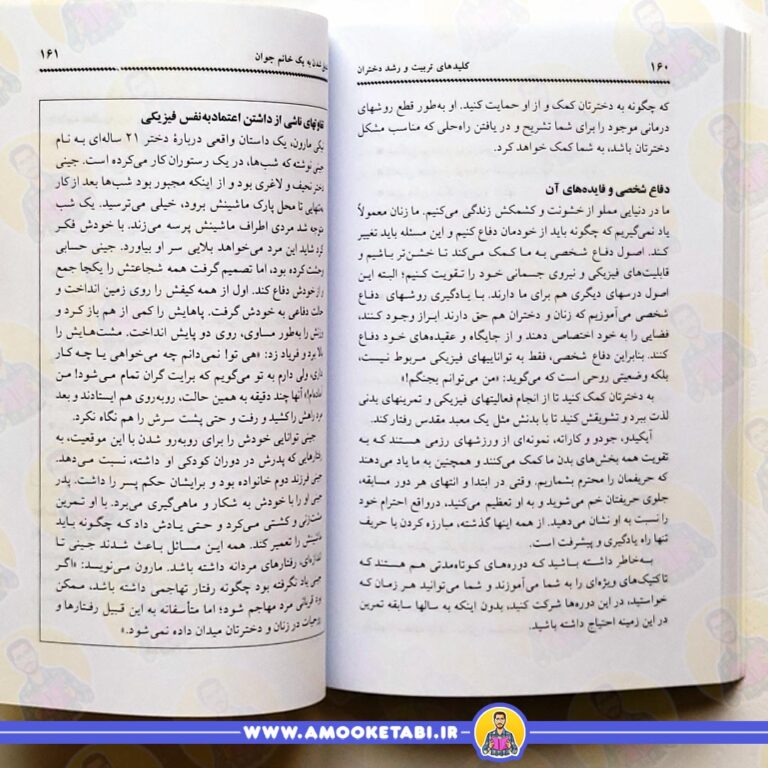 ۱۶۰
کلیدهای تربیت و رشد دختران
که چگونه به دخترتان کمک و از او حمایت کنید. او به‌طور قطع روشهای
درمانی موجود را برای شما تشریح و در یافتن راه‌حلی که مناسب مشکل
دخترتان باشد، به شما کمک خواهد کرد.
دفاع شخصی و فایده‌های آن
ما در دنیایی مملو از خشونت و کشمکش زندگی می‌کنیم. ما زنان معمولاً
یاد نمی‌گیریم که چگونه باید از خودمان دفاع کنیم و این مسئله باید تغییر
کند. اصول دفاع شخصی به ما کمک می‌کند تا خشن‌تر باشیم و
قابلیت‌های فیزیکی و نیروی جسمانی خود را تقویت کنیم؛ البته این
اصول درسهای دیگری هم برای ما دارند. با یادگیری روشهای دفاع
شخصی می‌آموزیم که زنان و دختران هم حق دارند ابراز وجود کنند،
فضایی را به خود اختصاص دهند و از جایگاه و عقیده‌های خود دفاع
کنند. بنابراین دفاع شخصی، فقط به تواناییهای فیزیکی مربوط نیست،
بلکه وضعیتی روحی است که می‌گوید: «من می‌توانم بجنگم!»
به دخترتان کمک کنید تا از انجام فعالیتهای فیزیکی و تمرینهای بدنی
لذت ببرد و تشویقش کنید تا با بدنش مثل یک معبد مقدس رفتار کند.
آیکیدو، جودو و کاراته، نمونه‌ای از ورزشهای رزمی هستند که به
تقویت همه بخش‌های بدن ما کمک می‌کنند و همچنین به ما یاد می‌دهند
که حریفمان را محترم بشماریم. وقتی در ابتدا و انتهای هر دور مسابقه،
جلوی حریفتان خم می‌شوید و به او تعظیم می‌کنید، درواقع احترام خود
را نسبت به او نشان می‌دهید. از همه اینها گذشته، مبارزه کردن با حریف
تنها راه یادگیری و پیشرفت است.
به‌خاطر داشته باشید که دوره‌های کوتاه‌مدتی هم هستند که
تاکتیک‌های ویژه‌ای را به شما می‌آموزند و شما می‌توانید هر زمان که
خواستید، در این دوره‌ها شرکت کنید، بدون اینکه به سالها سابقه تمرین
در این زمینه احتیاج داشته باشید.
شدن به یک خانم جوان
۱۶۱
تفاوتهای ناشی از داشتن اعتمادبه‌نفس فیزیکی
مارون، یک داستان واقعی دربارهٔ دختر ۲۱ ساله‌ای به نام
جینی نوشته که شب‌ها، در یک رستوران کار می‌کرده است. جینی
دختر نحیف و لاغری بود و از اینکه مجبور بود شب‌ها بعد از کار
به‌تنهایی تا محل پارک ماشینش برود، خیلی می‌ترسید. یک شب
متوجه شد مردی اطراف ماشینش پرسه می‌زند. با خودش فکر
کرد شاید این مرد می‌خواهد بلایی سر او بیاورد. جینی حسابی
وحشت کرده بود، اما تصمیم گرفت همه شجاعتش را یکجا جمع
و از خودش دفاع کند. اول از همه کیفش را روی زمین انداخت و
حالت دفاعی به خودش گرفت. پاهایش را کمی از هم باز کرد و
وزنش را به‌طور مساوی، روی دو پایش انداخت. مشت‌هایش را
بالا برد و فریاد زد: «هی تو! نمی‌دانم چه می‌خواهی یا چه کار
داری ولی دارم به تو می‌گویم که برایت گران تمام می‌شود! من
آماده‌ام!» آنها چند دقیقه به همین حالت، روبه‌روی هم ایستادند و بعد
مرد راهش را کشید و رفت و حتی پشت سرش را هم نگاه نکرد.
جینی توانایی خودش را برای روبه‌رو شدن با این موقعیت، به
رفتارهایی که پدرش در دوران کودکی او داشته، نسبت می‌دهد.
جینی فرزند دوم خانواده بود و برایشان حکم پسر را داشت. پدر
جینی او را با خودش به شکار و ماهی‌گیری می‌برد. با او تمرین
مشت‌زنی و کشتی می‌کرد و حتی یادش داد که چگونه باید
ماشینش را تعمیر کند. همه این مسائل باعث شدند جینی تا
اندازه‌ای، رفتارهای مردانه داشته باشد. مارون می‌نویسد: «اگر
جینی یاد نگرفته بود چگونه رفتار تهاجمی داشته باشد، ممکن
بود قربانی مرد مهاجم شود؛ اما متأسفانه به این قبیل رفتارها و
روحیات در زنان و دخترتان میدان داده نمی‌شود.»
WWW.AMOOKETABI.IR